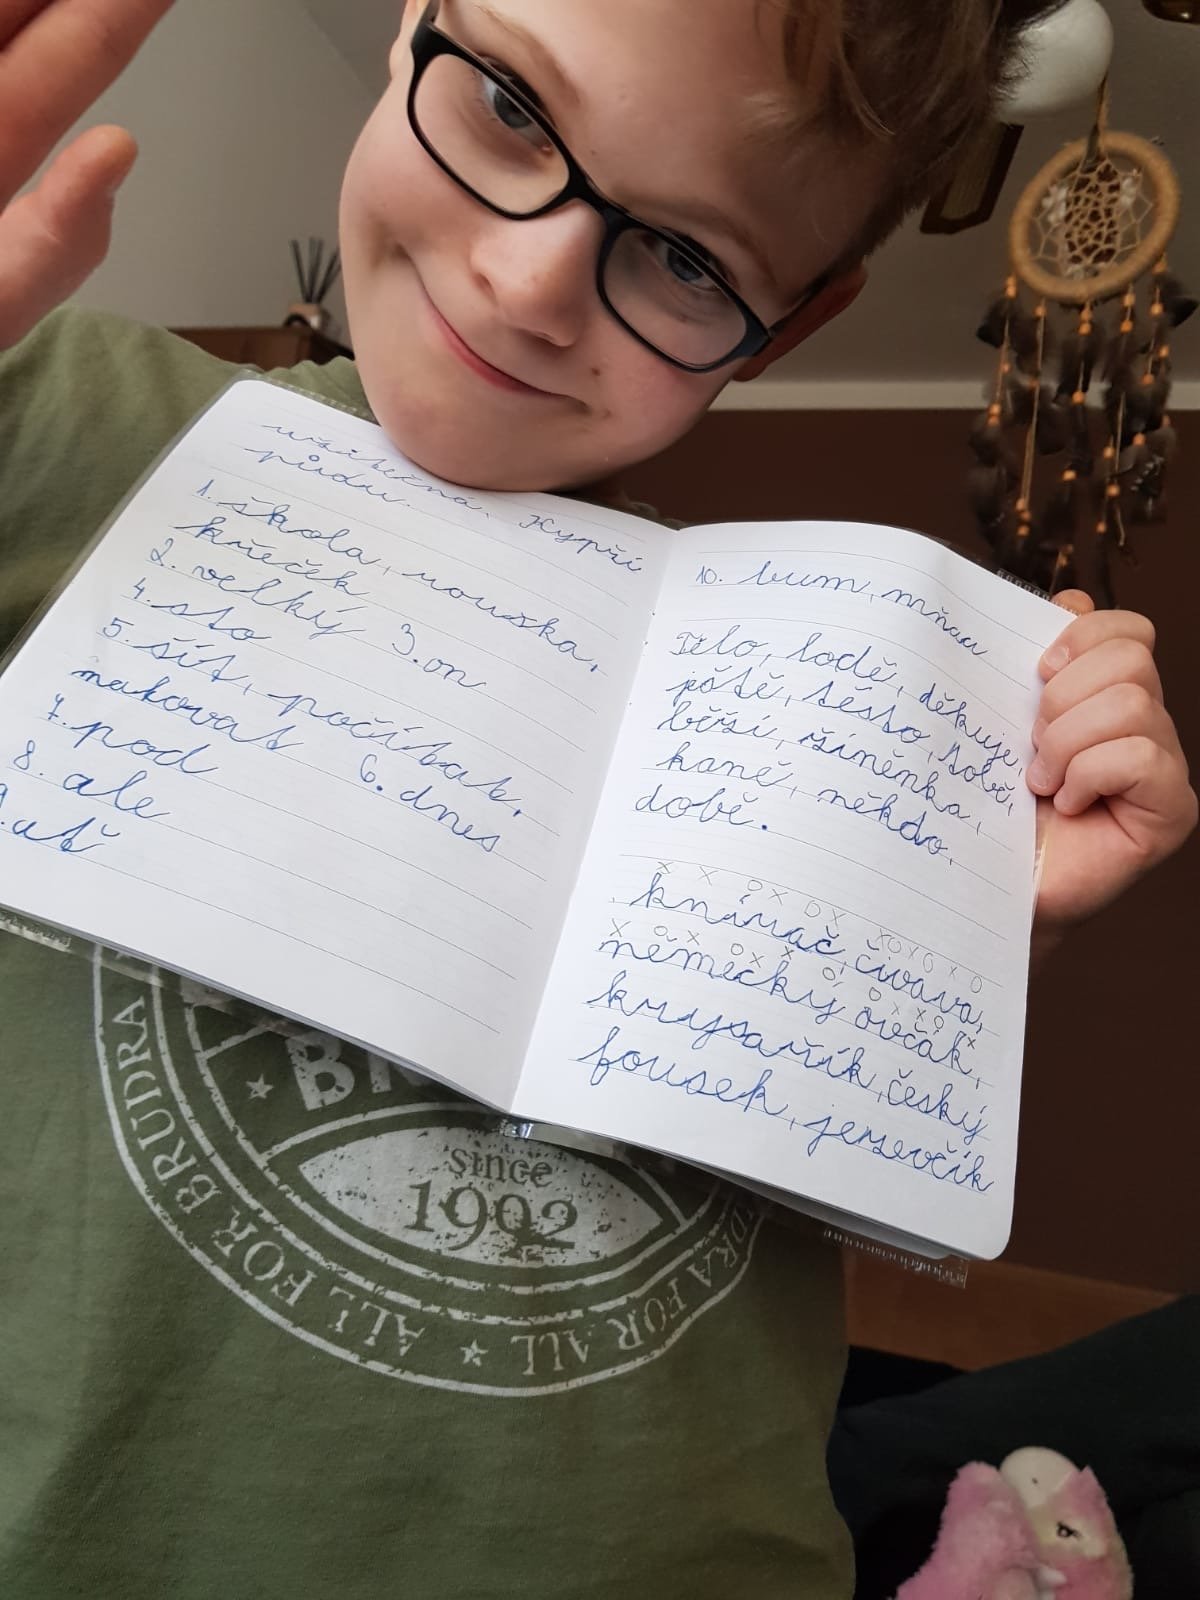 užitečná. Kypří
půdu.
1. škola, rouška,
křeček
2. velký 3. on
4. sto
5. šít, počítat,
malovat 6. dnes
7. pod
8. ale
9. ať
10. bum, mňau
Tělo, lodě, děkuje,
pště, těsto, tobě,
běží, žíněnka,
kaně, někdo,
době.
x x o x o x x o x o x o
knírač, čivava,
x o x o x x o o x x o x
německý ovčák,
krysařík, český
fousek, jersevčík
BRUDRA
ALL FOR BRUDRA
DRA FOR ALL
Since
1902